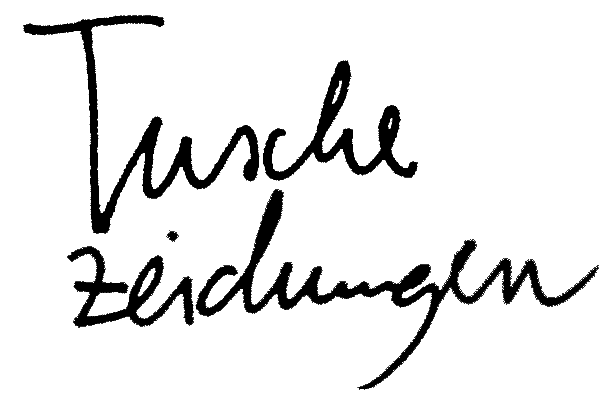 Tusche
Zeichnungen